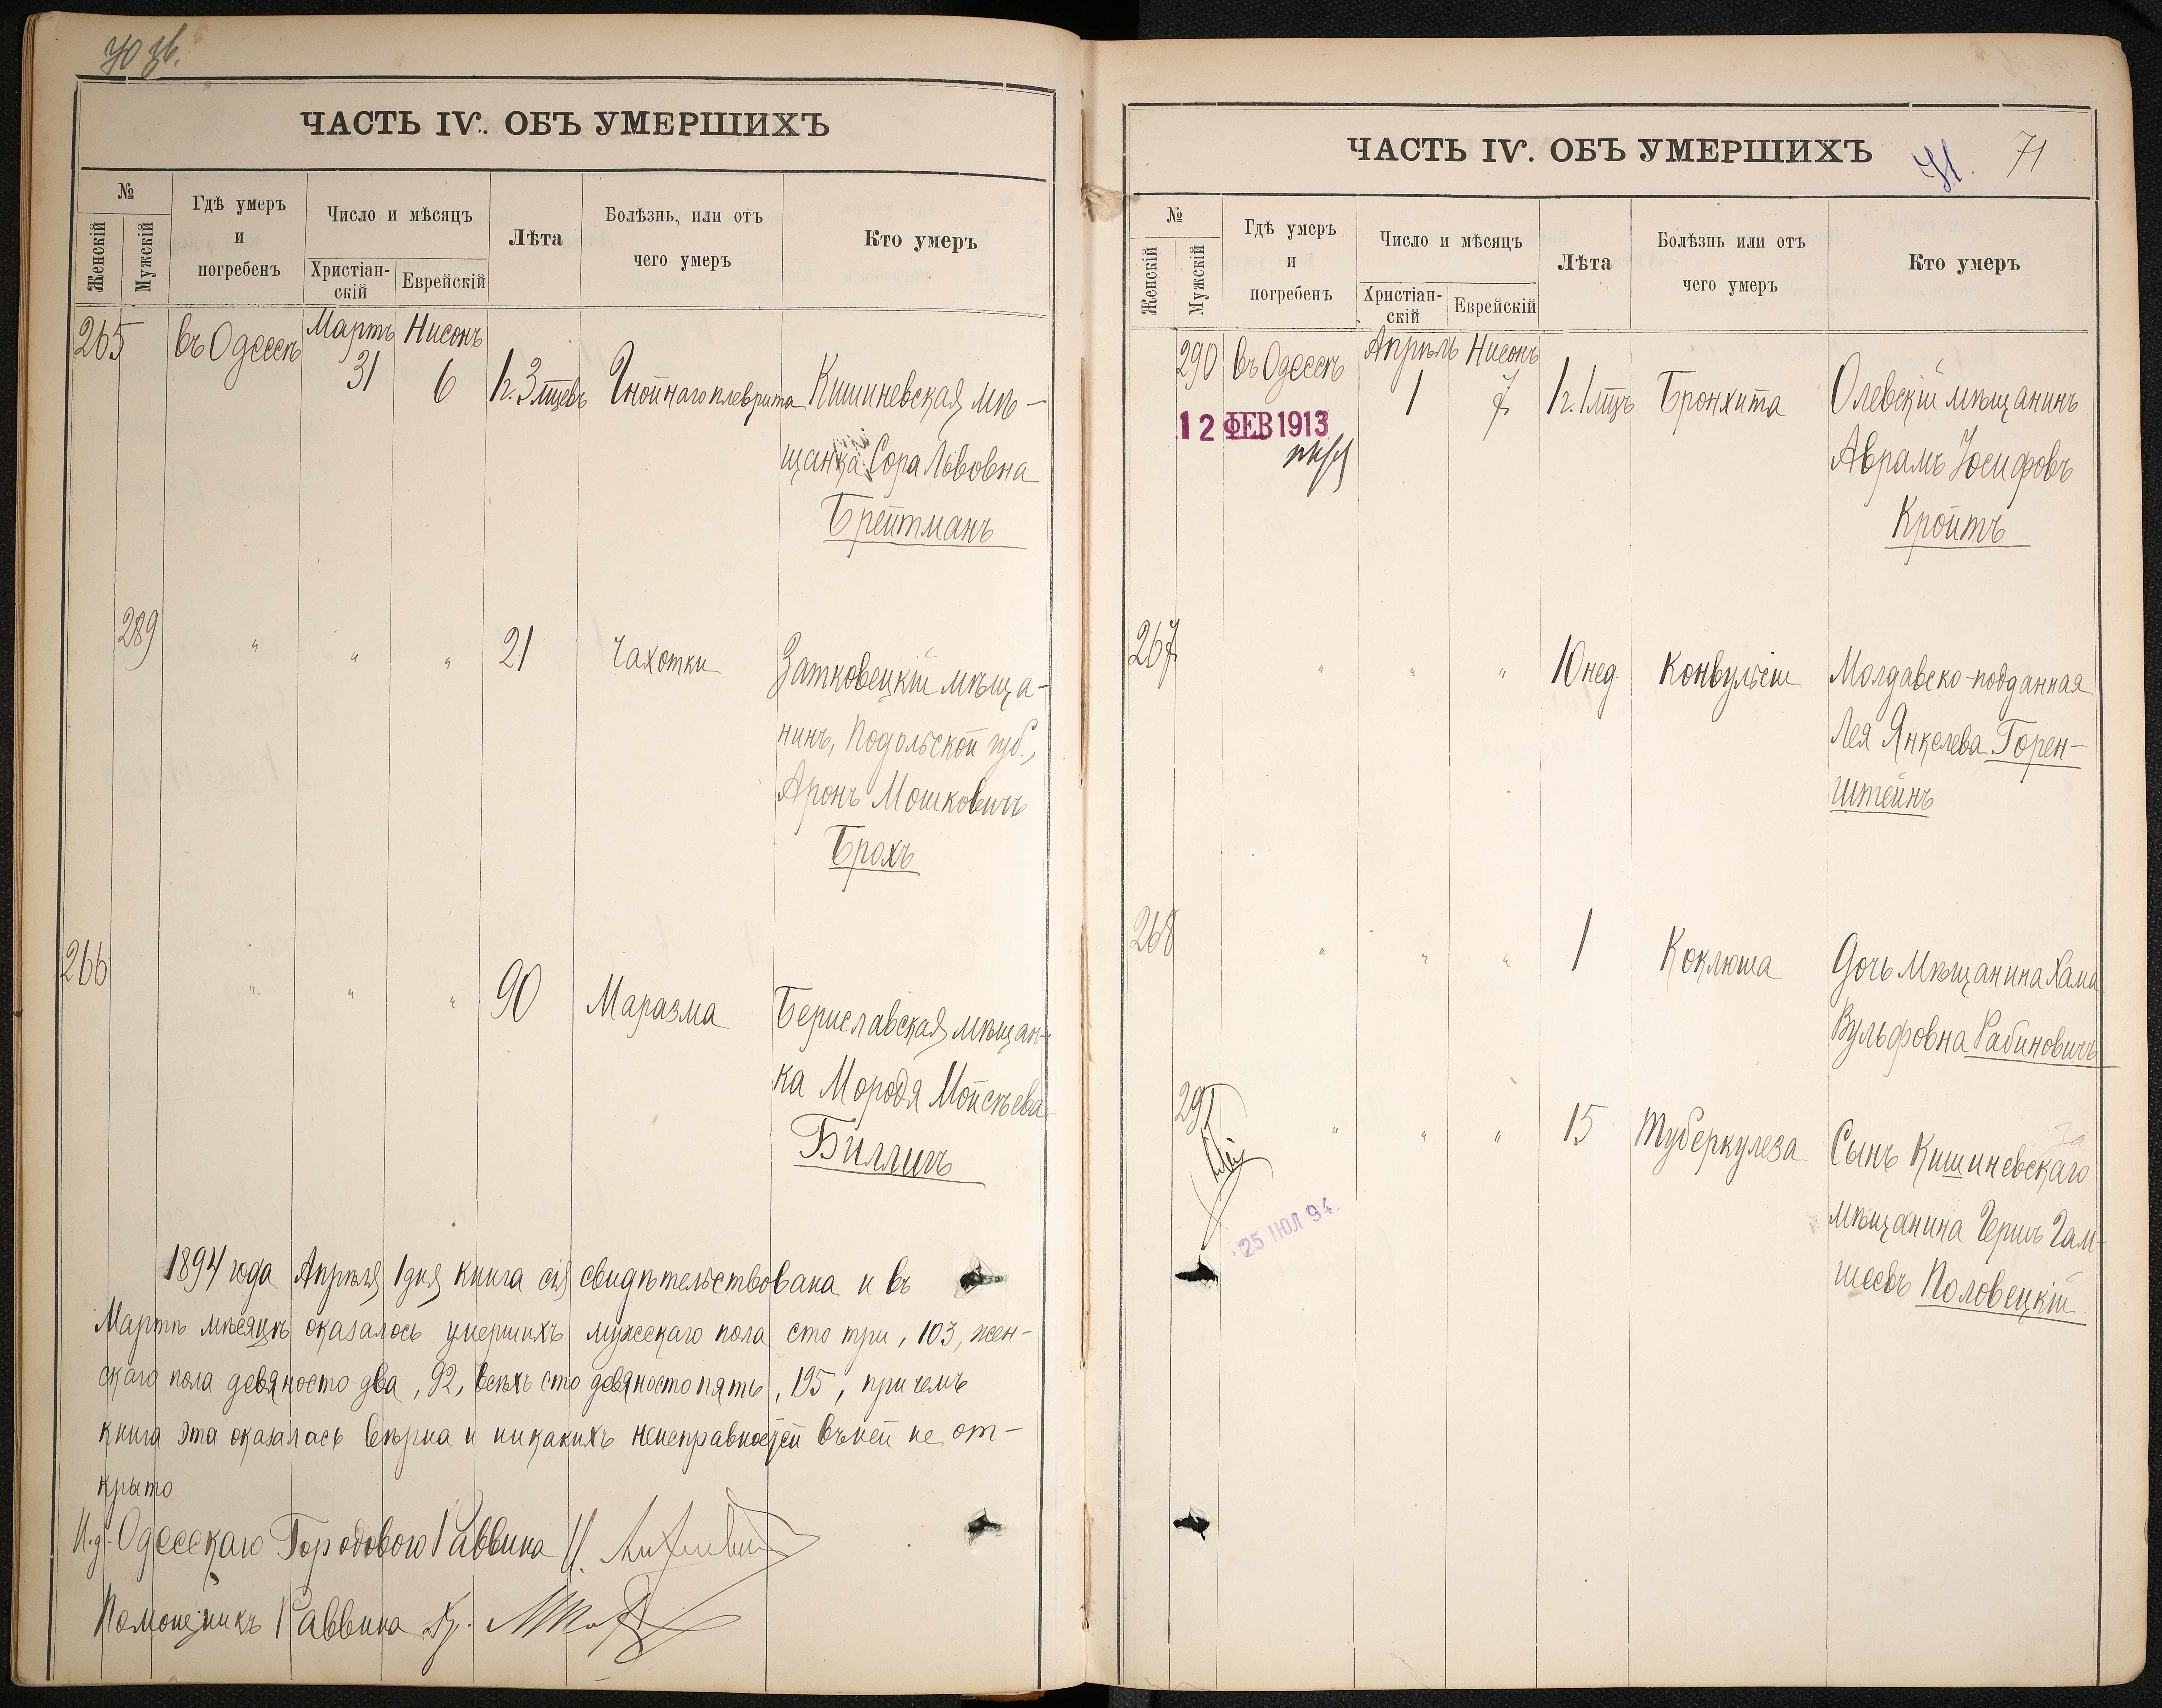 70 зв.
ЧАСТЬ IV. ОБЪ УМЕРШИХЪ
№
Женскій
Мужскій
Гдѣ умеръ
и
погребенъ
Число и мѣсяцъ
Христіан-
скій
Еврейскій
Лѣта
Болѣзнь, или отъ
чего умеръ
Кто умеръ
265 въ Одессѣ Мартъ Нисонъ
31 6 1 г. 3 мцевъ Гнойнаго плеврита Кишиневская мѣ-
щанка Сора Львовна
Брейтманъ
289 " " " 21 Чахотки Затковецкій мѣща-
нинъ, Подольской губ.,
Аронъ Мошковичъ
Брохъ
266 " " " 90 Маразма Бериславская мѣщан-
ка Мородя Мойсѣева
Биллигъ
1894 года Апрѣля 1 дня книга сія свидѣтельствована и въ
Мартѣ мѣсяцѣ оказалось умершихъ мужескаго пола сто три, 103, жен-
скаго пола девяносто два, 92, всѣхъ сто девяносто пять, 195, при чемъ
книга эта оказалась вѣрна и никакихъ неисправностей въ ней не от-
крыто
И.д. Одесскаго Городового Раввина
Помощникъ Раввина
ЧАСТЬ IV. ОБЪ УМЕРШИХЪ
71. 71
№
Женскій
Мужскій
Гдѣ умеръ
и
погребенъ
Число и мѣсяцъ
Христіан-
скій
Еврейскій
Лѣта
Болѣзнь или отъ
чего умеръ
Кто умеръ
290 въ Одессѣ Апрѣль Нисонъ
1 7 1 г. 1 мцъ Бронхита Олевскій мѣщанинъ
12 ФЕВ 1913
Аврамъ Іосифовъ
Кройтъ
267 " " " 10 нед. Конвульсіи Молдавско-подданная
Лея Янкелева Горен-
штейнъ
268 " " " 1 Коклюша Дочь мѣщанина Хама
Вульфовна Рабиновичъ
291 " " " 15 Туберкулеза Сынъ Кишиневскаго
мѣщанина Гершъ Гам-
шеевъ Половецкій
25 ІЮЛ 94